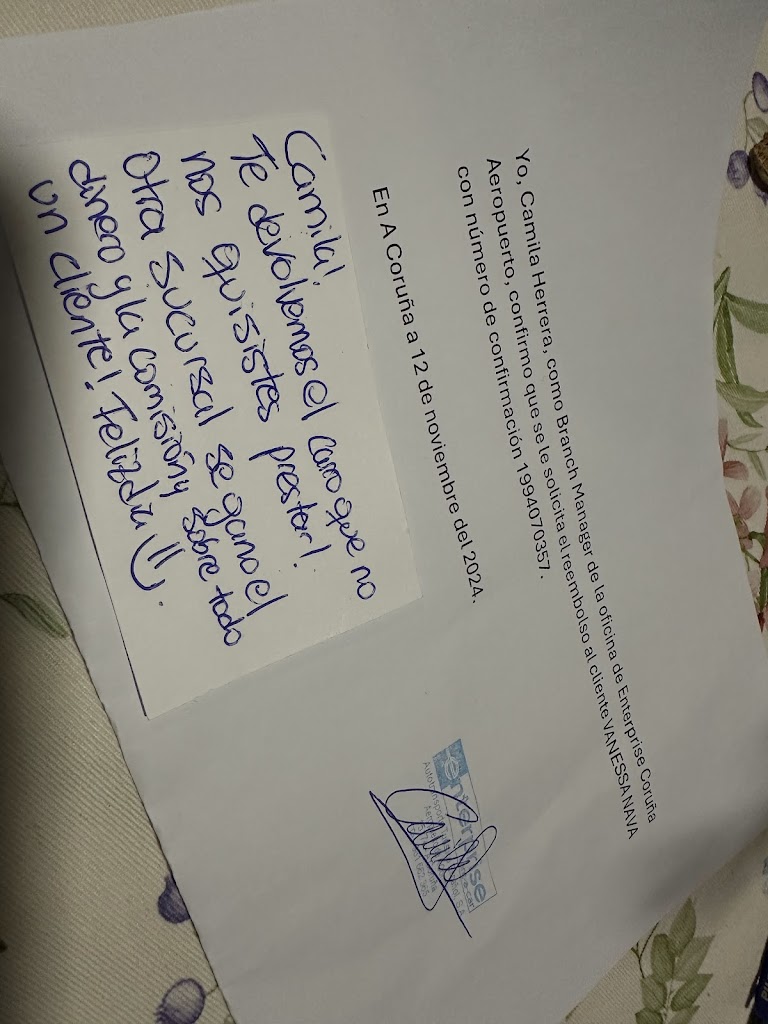 Yo, Camila Herrera, como Branch Manager de la oficina de Enterprise Coruña
Aeropuerto, confirmo que se le solicita el reembolso al cliente VANESSA NAVA
con número de confirmación 1994070357.
En A Coruña a 12 de noviembre del 2024.
enterprise
Camila!
Te devolvemos el carro que no
nos quisistes prestar!
Otra sucursal se gano el
dinero y la comisión y sobre todo
un cliente! Feliz día